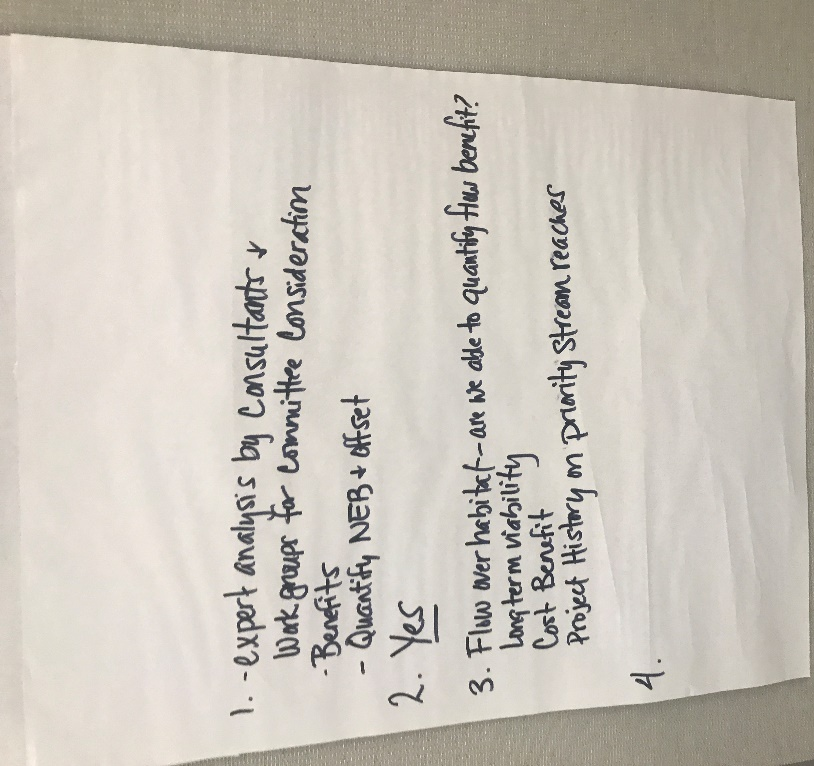 1. - expert analysis by Consultants +
Work groups for Committee Consideration
- Benefits
- Quantify NEB + offset
2. Yes
3. Flow over habitat - are we able to quantify flow benefit?
Long term viability
Cost Benefit
Project History on priority Stream reaches
4.